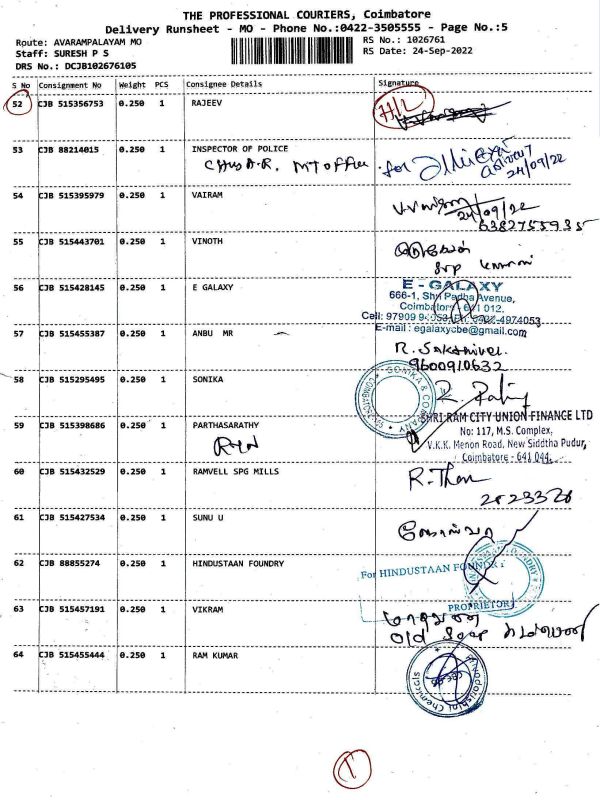 THE PROFESSIONAL COURIERS, Coimbatore
Delivery Runsheet - MO - Phone No.:0422-3505555 - Page No.:5
Route: AVARAMPALAYAM MO
RS No.: 1026761
Staff: SURESH P S
RS Date: 24-Sep-2022
DRS No.: DCJB102676105
S No Consignment No Weight PCS Consignee Details Signature
52 CJB 515356753 0.250 1 RAJEEV H/L
53 CJB 88214015 0.250 1 INSPECTOR OF POLICE
MT office for
24/09/22
54 CJB 515395979 0.250 1 VAIRAM
24/09/22
6382755935
55 CJB 515443701 0.250 1 VINOTH
56 CJB 515428145 0.250 1 E GALAXY E - GALAXY
666-1, Shri Padha Avenue,
Coimbatore - 641 012.
Cell: 97909 0422-4974053
E-mail : egalaxycbe@gmail.com
57 CJB 515455387 0.250 1 ANBU MR
R. Sakthivel
9600910632
58 CJB 515295495 0.250 1 SONIKA SONIKA & COMPANY
COIMBATORE
SHRI RAM CITY UNION FINANCE LTD
59 CJB 515398686 0.250 1 PARTHASARATHY No: 117, M.S. Complex,
V.K.K. Menon Road, New Siddha Pudur,
Coimbatore - 641 044.
60 CJB 515432529 0.250 1 RAMVELL SPG MILLS
61 CJB 515427534 0.250 1 SUNU U
62 CJB 88855274 0.250 1 HINDUSTAAN FOUNDRY For HINDUSTAAN FOUNDRY
PROPRIETOR
63 CJB 515457191 0.250 1 VIKRAM
old
64 CJB 515455444 0.250 1 RAM KUMAR
Chemicals
1